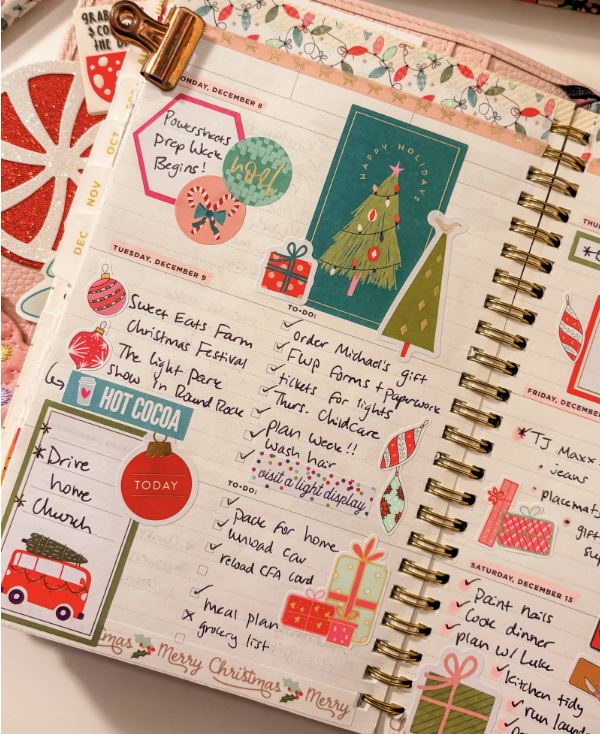 GRAB
$ CO
THE D
OCT
NOV
DEC
MONDAY, DECEMBER 8
Powersheets
Prep Week
Begins!
noel
HAPPY HOLIDAYS
TUESDAY, DECEMBER 9
Sweet Eats Farm
Christmas Festival
The Light Park
show in Round Rock
HOT COCOA
*
* Drive
home
* Church
TODAY
TO-DO:
✓ Order Michael's gift
✓ FWP forms + paperwork
✓ tickets for lights
✓ Thurs. Childcare
✓ plan week!!
✓ wash hair
✓ visit a light display
TO-DO:
✓ pack for home
✓ unload car
✓ reload CFA card
✓ meal plan
x grocery list
mas Merry Christmas Merry
THU
FRIDAY, DECEMBE
* TJ Maxx
• jeans
• placemat
• gift
SATURDAY, DECEMBER 13
✓ Paint nails
✓ Cook dinner
✓ plan w/ Luke
✓ kitchen tidy
✓ run laund